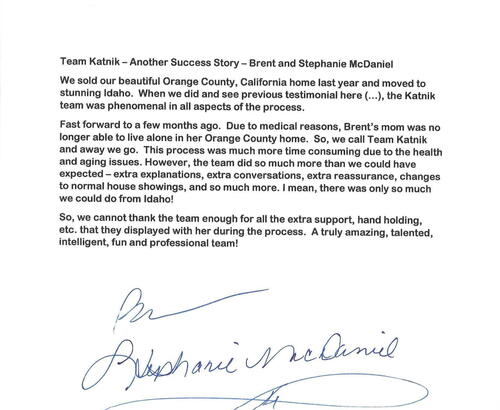 Team Katnik – Another Success Story – Brent and Stephanie McDaniel
We sold our beautiful Orange County, California home last year and moved to
stunning Idaho.  When we did and see previous testimonial here (...), the Katnik
team was phenomenal in all aspects of the process.
Fast forward to a few months ago.  Due to medical reasons, Brent's mom was no
longer able to live alone in her Orange County home.  So, we call Team Katnik
and away we go.  This process was much more time consuming due to the health
and aging issues. However, the team did so much more than we could have
expected – extra explanations, extra conversations, extra reassurance, changes
to normal house showings, and so much more. I mean, there was only so much
we could do from Idaho!
So, we cannot thank the team enough for all the extra support, hand holding,
etc. that they displayed with her during the process.  A truly amazing, talented,
intelligent, fun and professional team!
Stephanie McDaniel